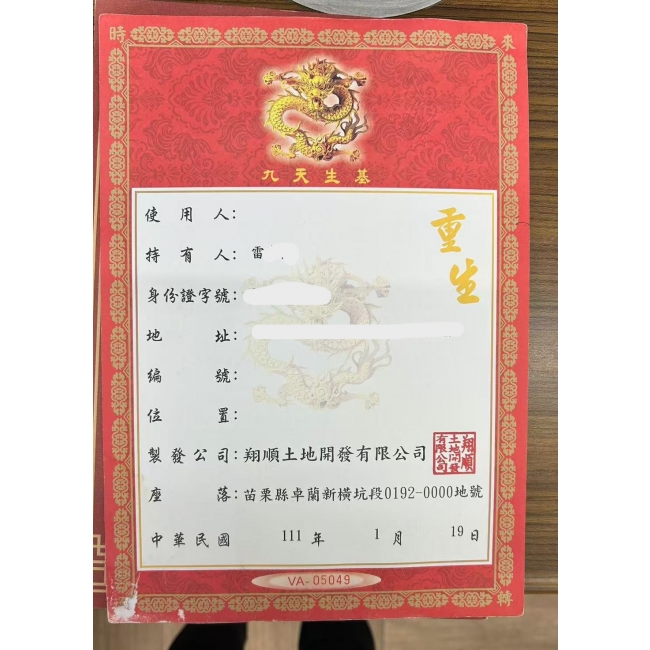 時來
九天生基
重生
使用人：
持有人：雷
身份證字號：
地址：
編號：
位置：
製發公司：翔順土地開發有限公司
翔順土地開發有限公司
座落：苗栗縣卓蘭新橫坑段0192-0000地號
中華民國 111 年 1 月 19 日
VA-05049
運轉